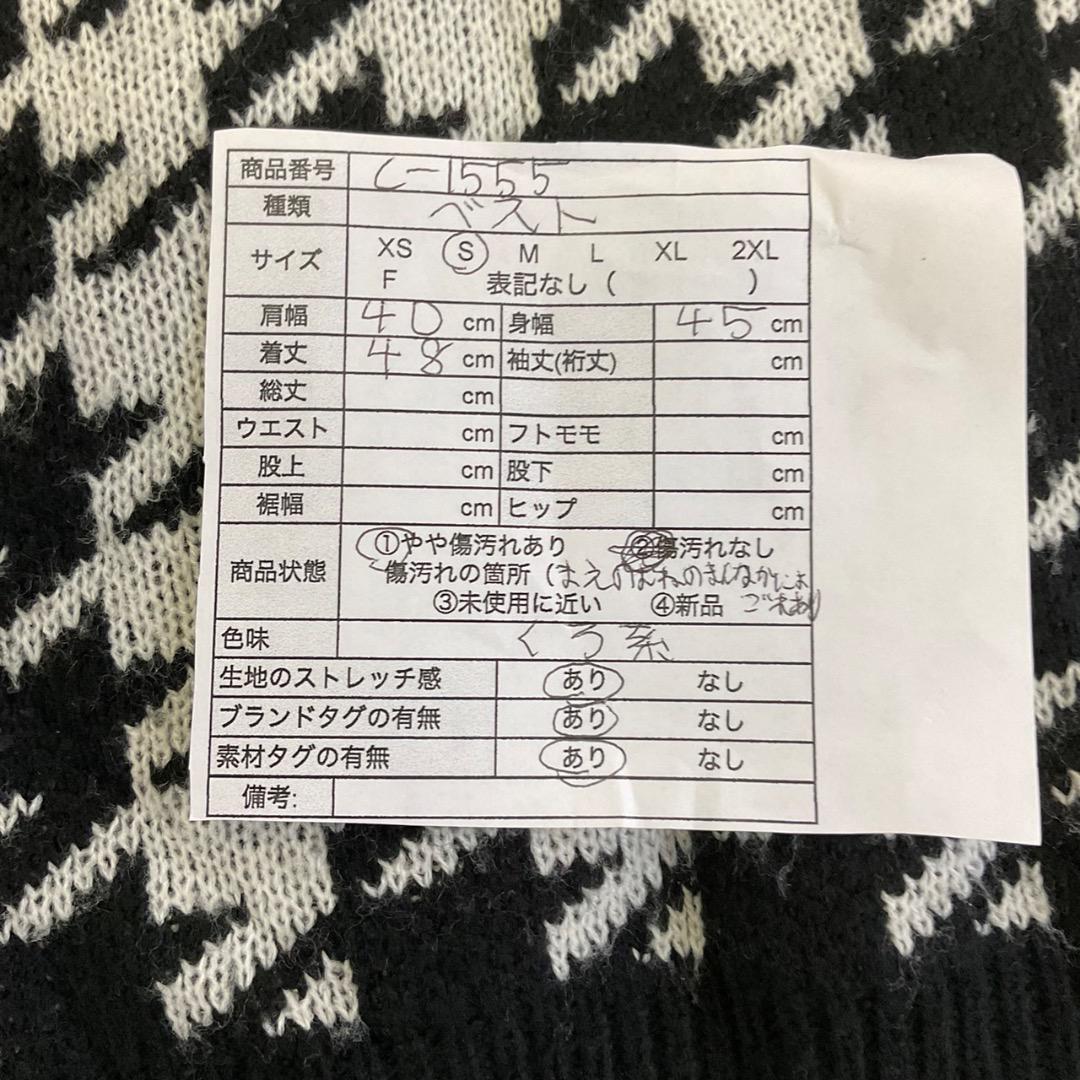 商品番号 C-1555
種類 ベスト
サイズ XS S M L XL 2XL
F 表記なし ( )
肩幅 40 cm 身幅 45 cm
着丈 48 cm 袖丈(裄丈) cm
総丈 cm
ウエスト cm フトモモ cm
股上 cm 股下 cm
裾幅 cm ヒップ cm
商品状態 ①やや傷汚れあり ②傷汚れなし
傷汚れの箇所 (まえのむねのまんなかによ
③未使用に近い ④新品 ごれあり
色味 くろ系
生地のストレッチ感 あり なし
ブランドタグの有無 あり なし
素材タグの有無 あり なし
備考: